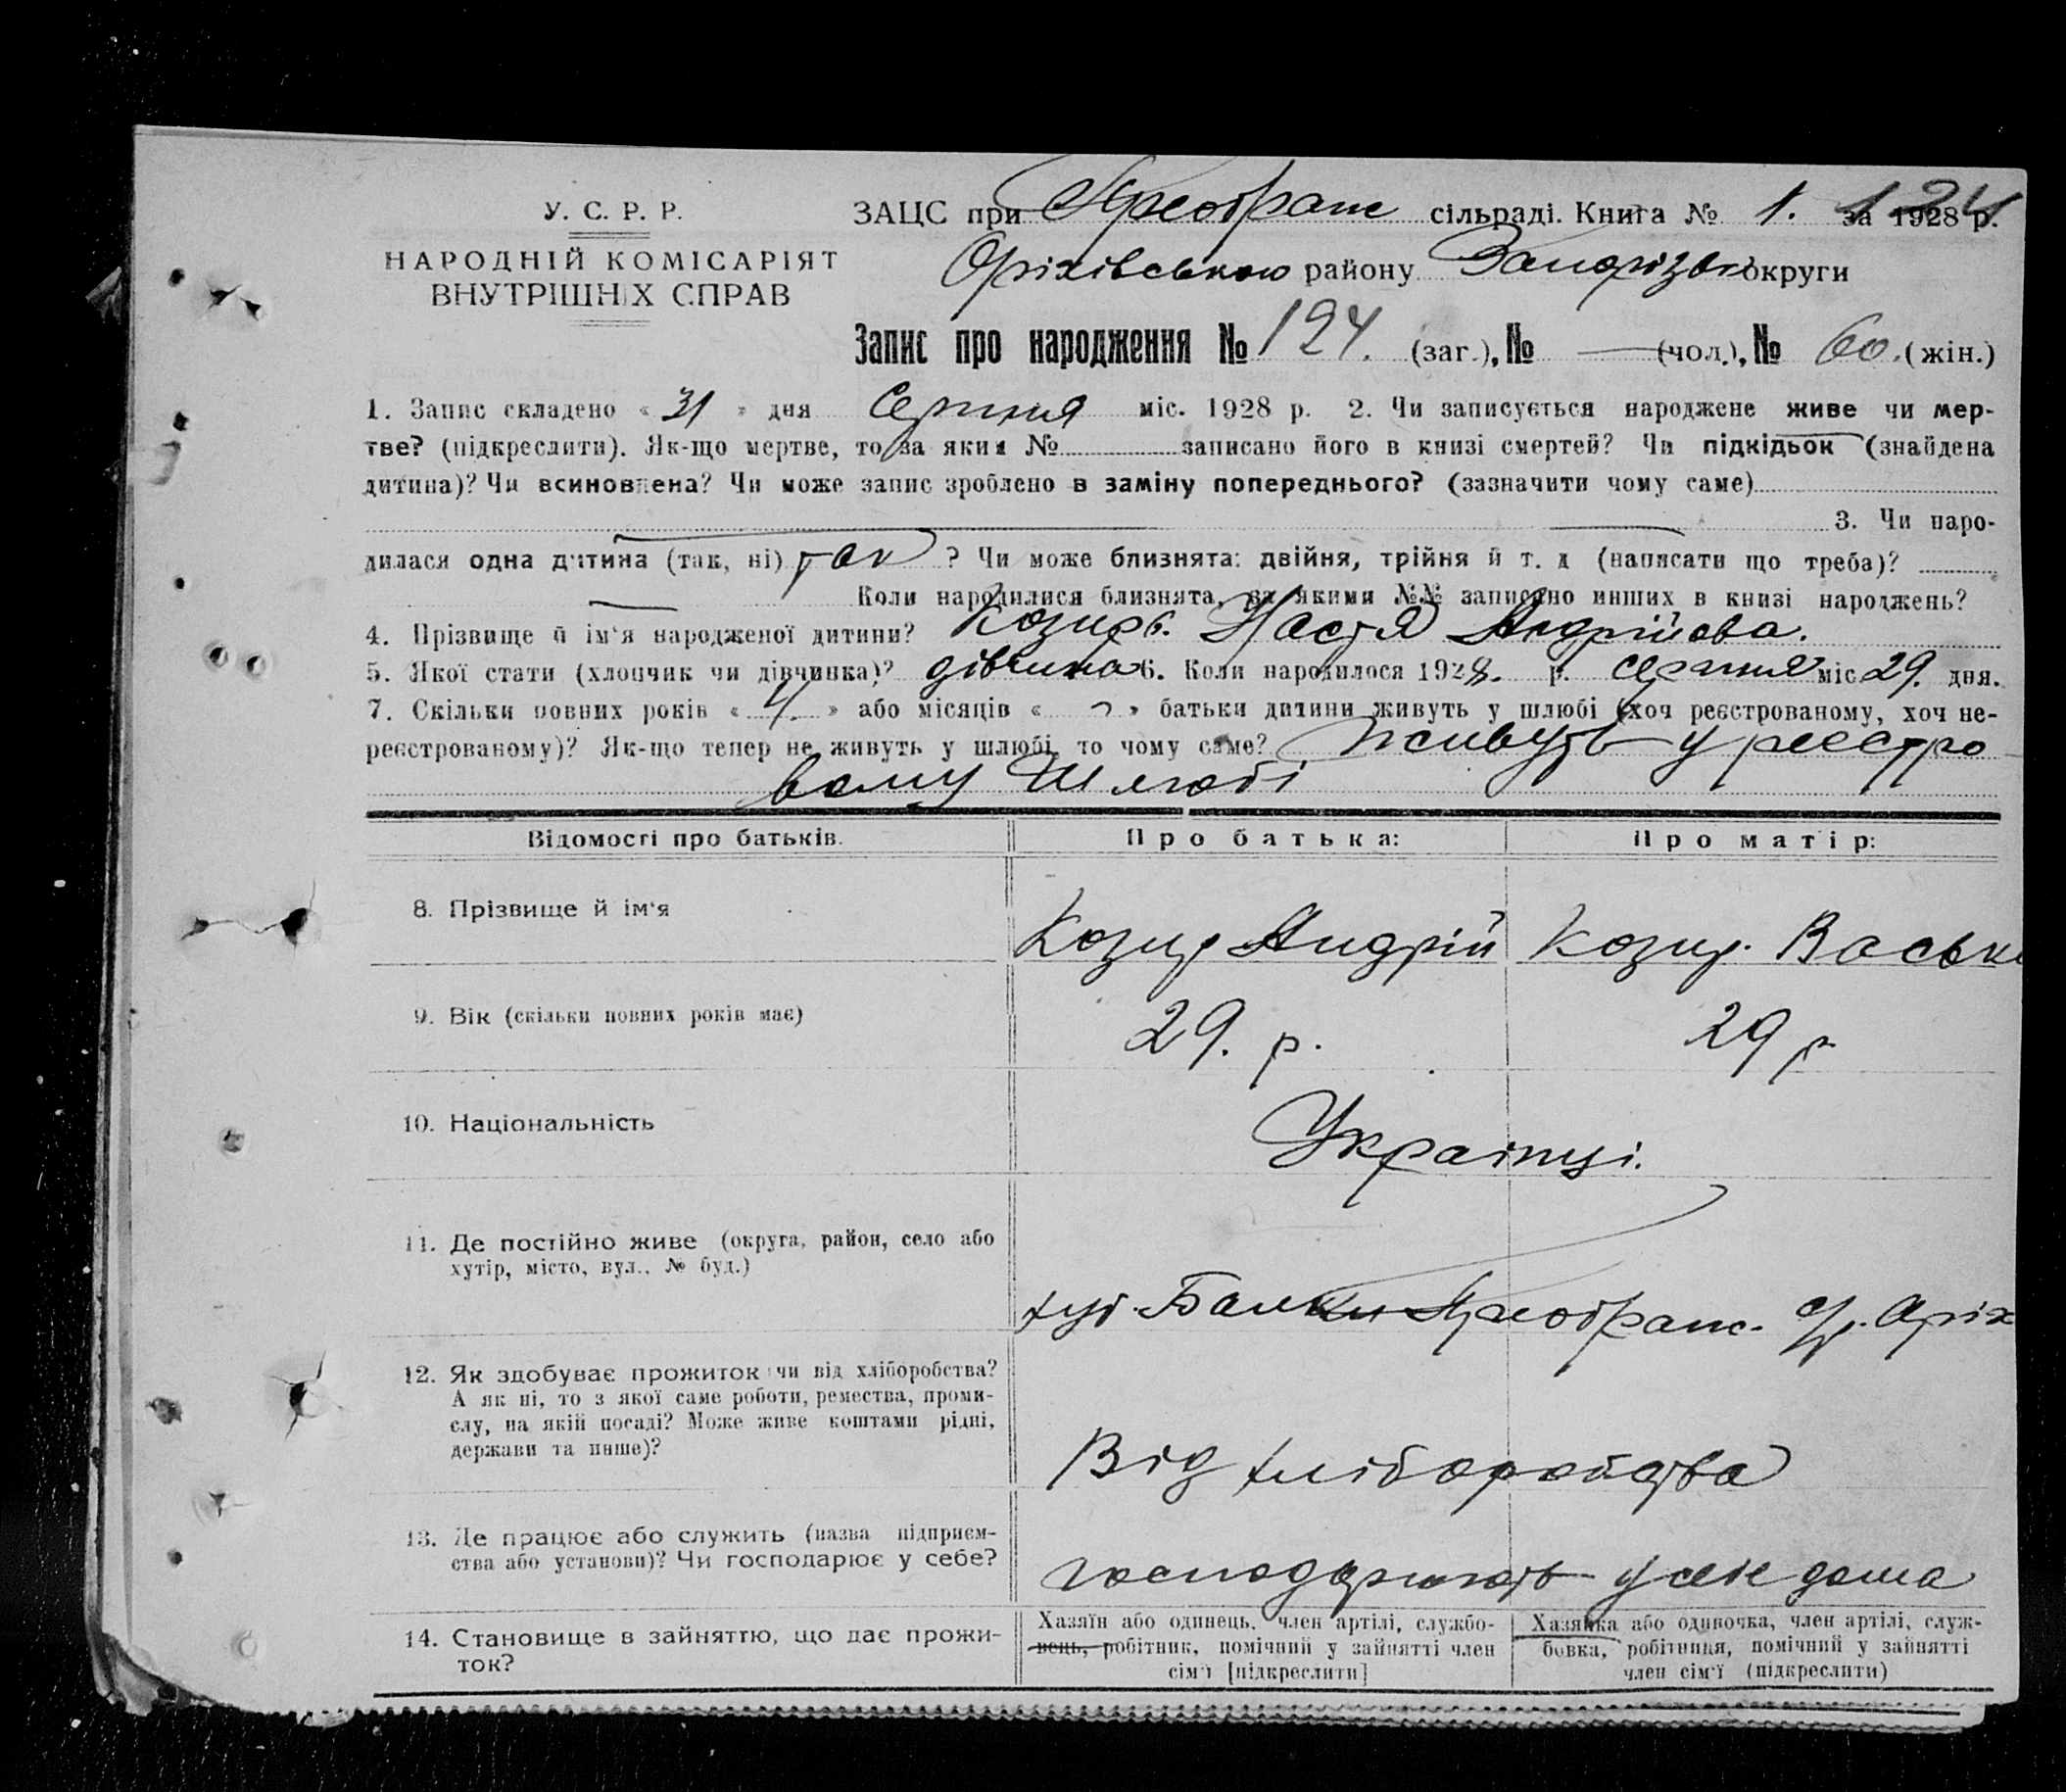 У. С. Р. Р.
НАРОДНІЙ КОМІСАРІЯТ
ВНУТРІШНІХ СПРАВ
124
ЗАЦС при Преображ сільраді. Книга № 1. за 1928 р.
Оріхівського району Запорізької округи
Запис про народження № 124. (заг.), № — (чол.), № 60. (жін.)
1. Запис складено « 31 » дня Серпня міс. 1928 р. 2. Чи записується народжене живе чи мер-
тве? (підкреслити). Як-що мертве, то за яким № записано його в книзі смертей? Чи підкідьок (знайдена
дитина)? Чи всиновлена? Чи може запис зроблено в заміну попереднього? (зазначити чому саме)
— 3. Чи наро-
дилася одна дитина (так, ні) так ? Чи може близнята: двійня, трійня й т. д (написати що треба)?
— Коли народилися близнята, за якими №№ записано инших в книзі народжень?
4. Прізвище й ім'я народженої дитини? Козирь. Настя Андрійова.
5. Якої стати (хлопчик чи дівчинка)? дівчина 6. Коли народилося 1928. р. серпня міс 29. дня.
7. Скільки повних років « 4. » або місяців « » батьки дитини живуть у шлюбі (хоч реєстрованому, хоч не-
реєстрованому)? Як-що тепер не живуть у шлюбі, то чому саме? живуть у реєстро
вому Шлюбі
Відомості про батьків. Про батька: Про матір:
8. Прізвище й ім'я Козир Андрій Козир. Васьки
9. Вік (скільки повних років має) 29. р. 29 р
10. Національність Українці.
11. Де постійно живе (округа, район, село або
хутір, місто, вул., № буд.)
хут. Балки Преображ. с/р. Оріх
12. Як здобуває прожиток чи від хліборобства?
А як ні, то з якої саме роботи, ремества, проми-
слу, на якій посаді? Може живе коштами рідні,
держави та инше)?
Від хліборобства
13. Де працює або служить (назва підприєм-
ства або установи)? Чи господарює у себе?
господарюють у себе дома
14. Становище в зайняттю, що дає прожи-
ток?
Хазяїн або одинець, член артілі, службо-
вець, робітник, помічний у зайнятті член
сім'ї [підкреслити]
Хазяйка або одиночка, член артілі, служ-
бовка, робітниця, помічний у зайнятті
член сім'ї (підкреслити)